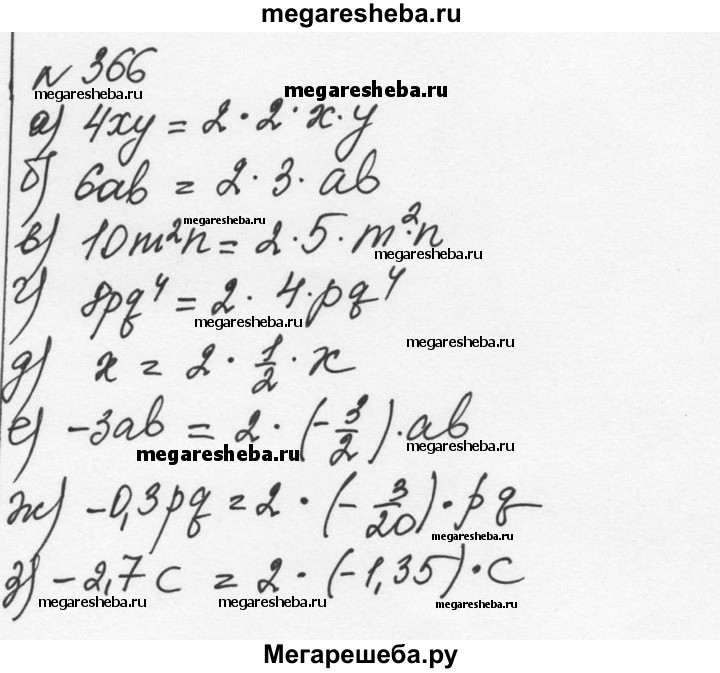 megaresheba.ru
№ 366
megaresheba.ru
megaresheba.ru
а) 4xy = 2 · 2 · x · y
б) 6ab = 2 · 3 · ab
megaresheba.ru
в) 10m²n = 2 · 5 · m² · n
megaresheba.ru
г) 8pq⁴ = 2 · 4 · pq⁴
megaresheba.ru
megaresheba.ru
д) x = 2 · 1/2 · x
е) -3ab = 2 · (-3/2) · ab
megaresheba.ru
megaresheba.ru
ж) -0,3pq = 2 · (-3/20) · pq
megaresheba.ru
з) -2,7c = 2 · (-1,35) · c
megaresheba.ru
megaresheba.ru
megaresheba.ru
Мегарешеба.ру